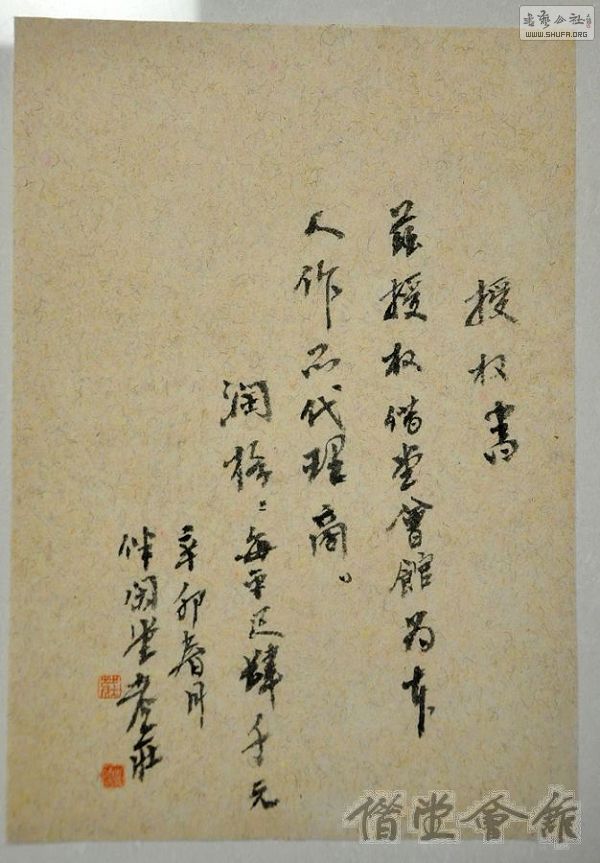 授权书
兹授权偕堂會館为本
人作品代理商。
润格：每平尺肆千元
辛卯春月
伴閑堂 老莊
書藝公社
WWW.SHUFA.ORG
偕堂會館